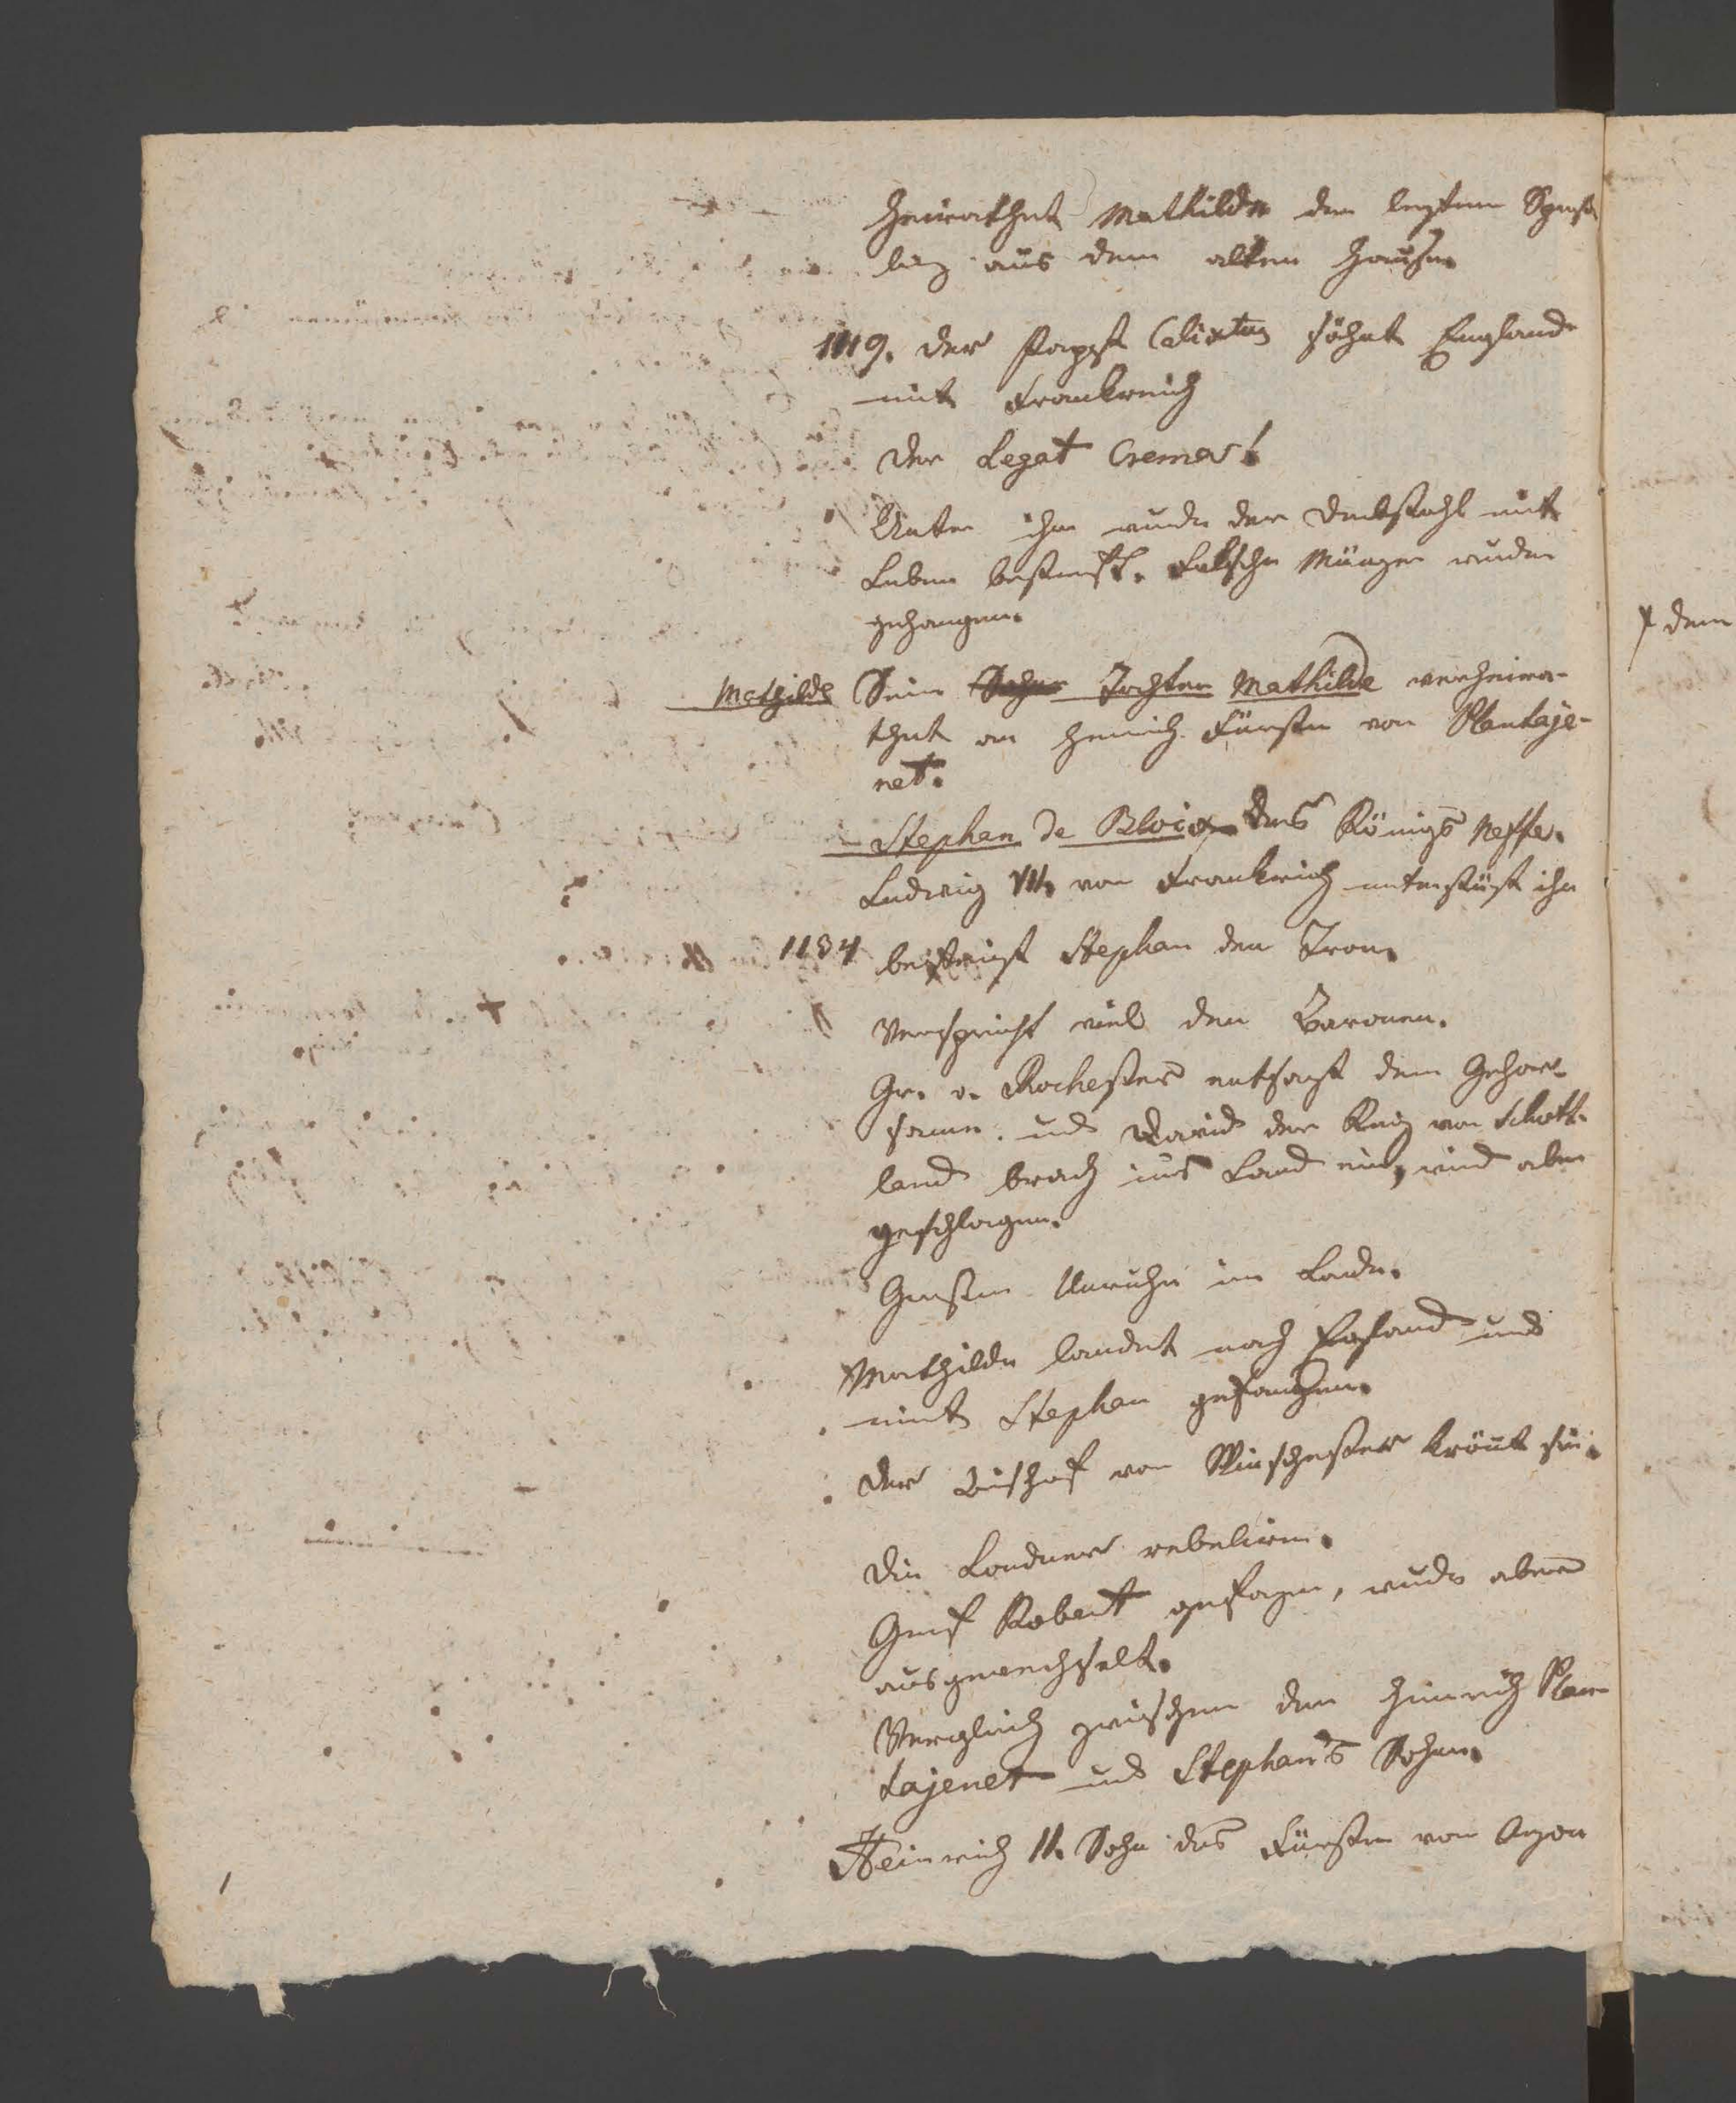 heirathet Mathilde den lezten Spröß-
ling aus dem alten Hause.
1119. der Papst Calixtus söhnt England
mit Frankreich
der Legat Crema!
Unter ihm wurde der Diebstahl mit
Leben bestraft. Falsche Münzer wurden
gehangen.
Mathilde Seine Sohn Tochter Mathilde verheira-
thet an Heinrich Fürsten von Plantaje-
net.
Stephan de Bloix des Königs Neffe.
Ludwig VII. von Frankreich unterstüzt ihn
1134 besteigt Stephan den Tron.
Verspricht viel den Baronen.
Gr. v. Rochester entsagt dem Gehor-
same. und David der König von Schott-
land brach ins Land ein, wird aber
geschlagen.
Große Unruhe im Lande.
Mathilde landet nach England und
nimt Stephan gefangen.
Der Bischof von Winschester krönt sie.
Die Londner rebeliren.
Graf Robert gefangen, wurde aber
ausgewechselt.
Vergleich zwischen dem Heinrich Plan-
tajenet und Stephan's Sohne.
Heinrich II. Sohn des Fürsten von Anjou
dem